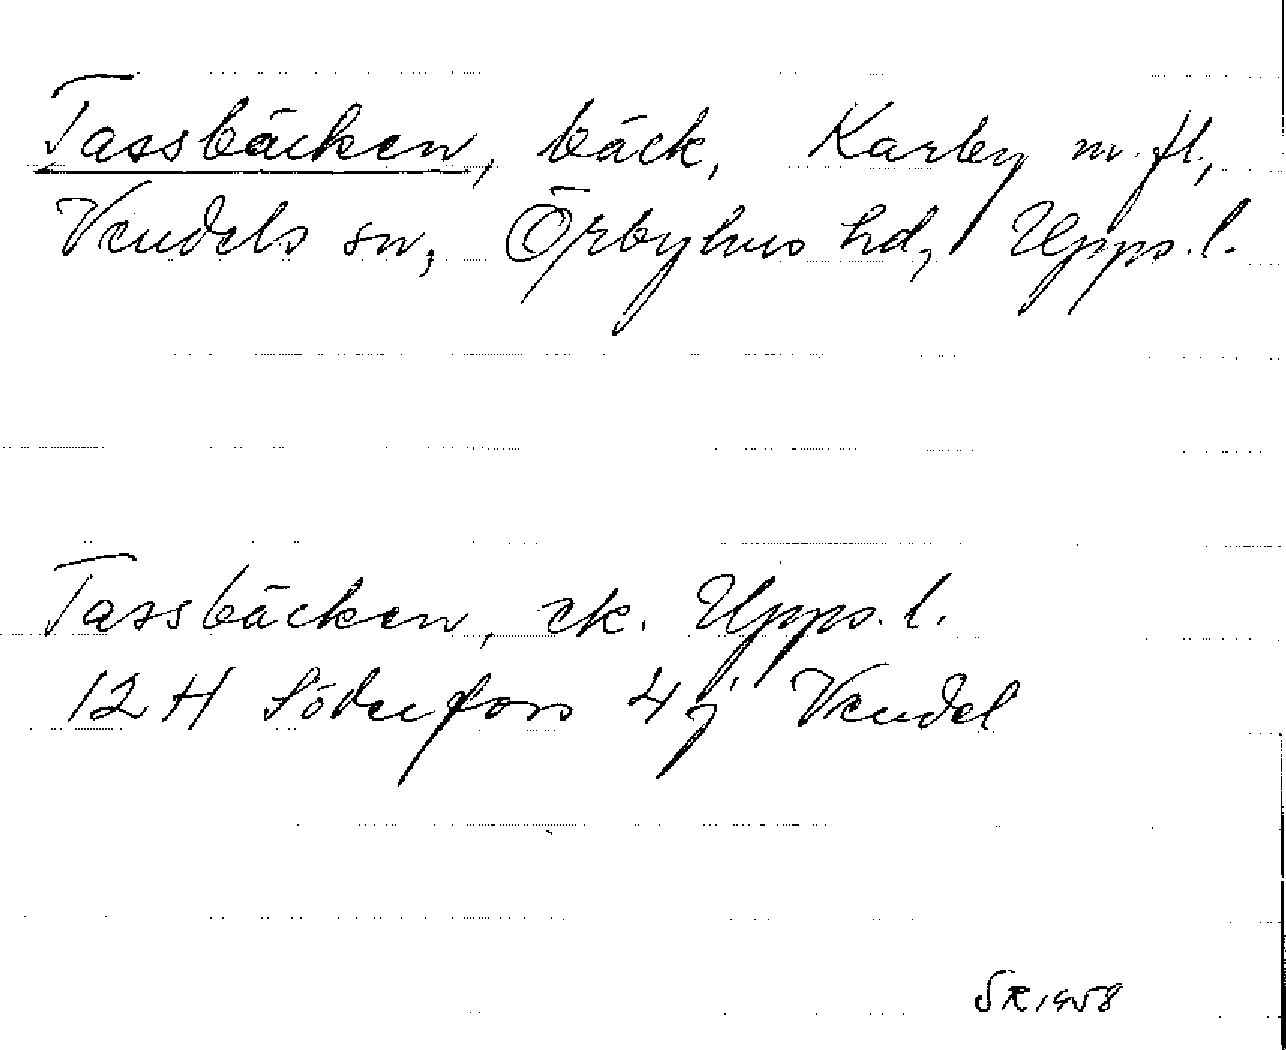 Tassbäcken, bäck, Karby m.fl.,
Vendels sn, Örbyhus hd, Upps.l.
Tassbäcken, ek. Upps.l.
12H Söderfors 4j Vendel
SR 1958